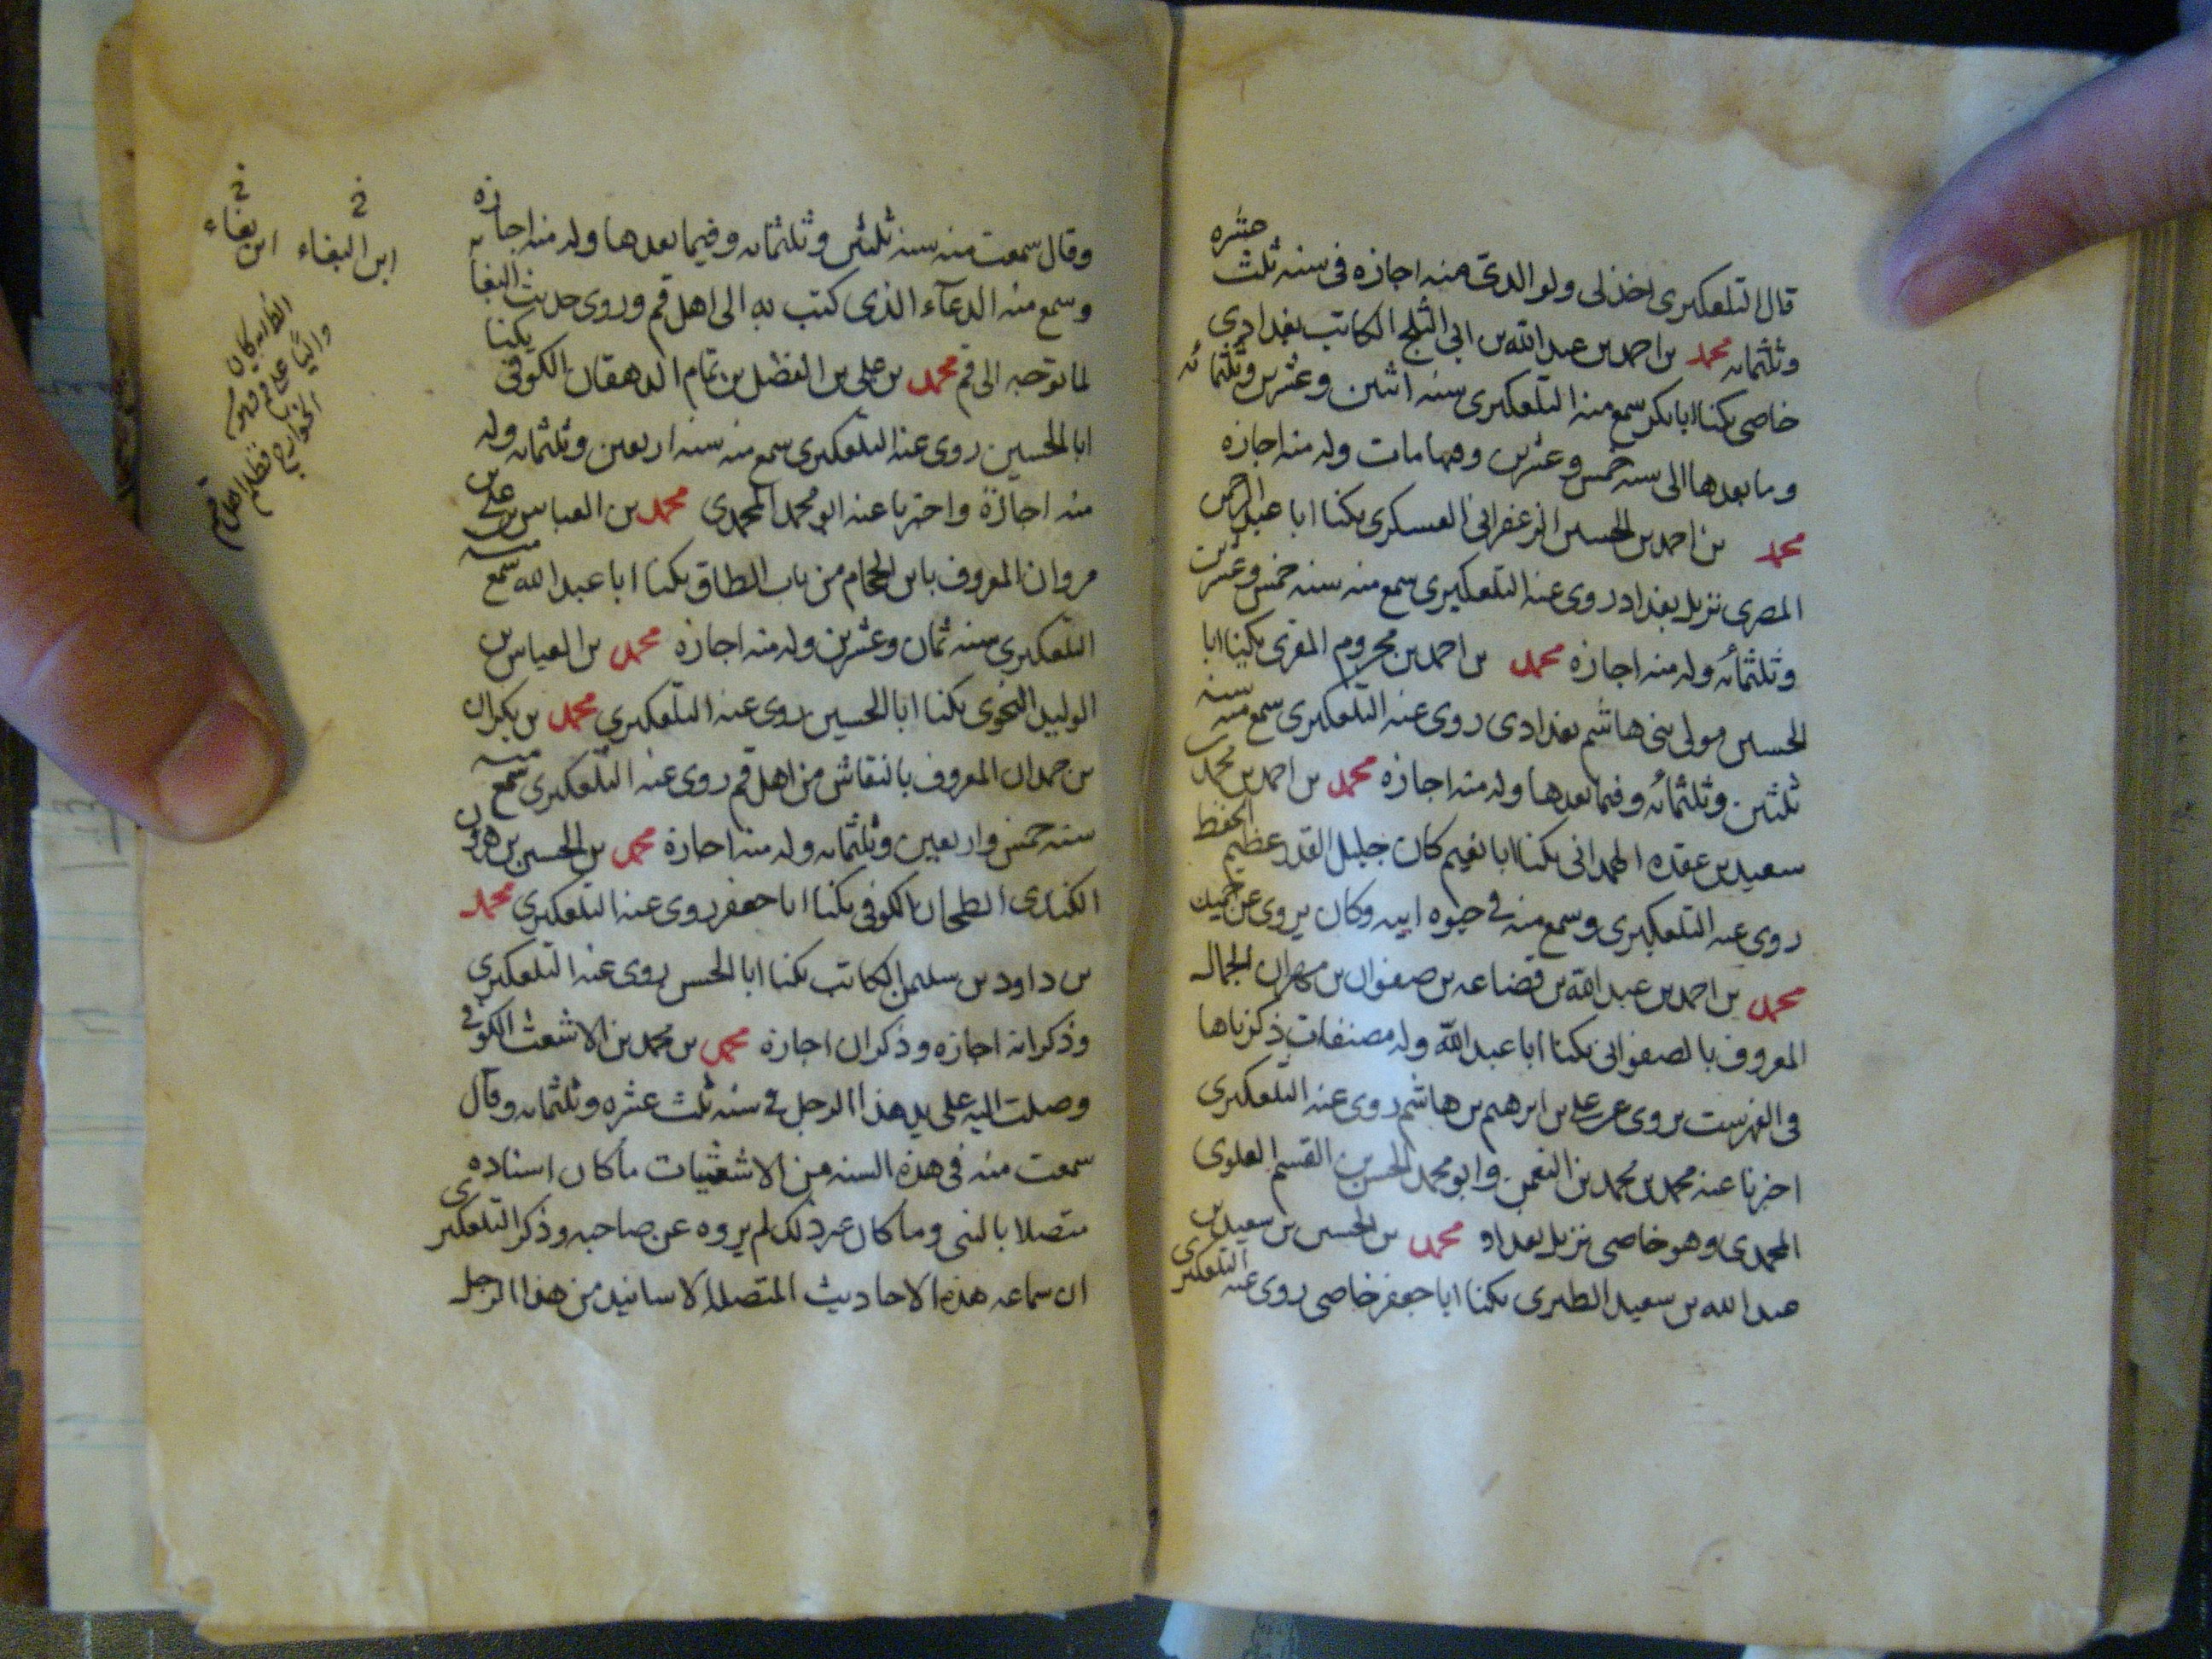 قال التلعكبرى اخذ لى ولوالدى منه اجازه فى سنه ثلث عشره
وثلثمائه محمد بن احمد بن عبد الله بن ابى الثلج الكاتب بغدادى
خاصى يكنا ابا بكر سمع منه التلعكبرى سنه اثنين وعشرين وثلثمائه
وما بعدها الى سنه خمس وعشرين وفيها مات وله منه اجازه
محمد بن احمد بن الحسين الزعفرانى العسكرى يكنا ابا عبد الرحمن
المصرى نزيل بغداد روى عنه التلعكبرى سمع منه سنه خمس وعشرين
وثلثمائه وله منه اجازه محمد بن احمد بن مخزوم المقرى يكنا ابا
الحسين مولى بنى هاشم بغدادى روى عنه التلعكبرى سمع منه سنه
ثلثين وثلثمائه وفيما بعدها وله منه اجازه محمد بن احمد بن محمد بن
سعيد بن عقده الهمدانى يكنا ابا نعيم كان جليل القدر عظيم الحفظ
روى عنه التلعكبرى وسمع منه فى حيوه ابيه وكان يروى عن حميد
محمد بن احمد بن عبد الله بن قضاعه بن صفوان بن مهران الجمال
المعروف بالصفوانى يكنا ابا عبد الله وله مصنفات ذكرناها
فى الفهرست يروى عن على بن ابرهيم بن هاشم روى عنه التلعكبرى
اخبرنا عنه محمد بن محمد بن النعمن وابو محمد الحسن بن القسم العلوى
المحمدى وهو خاصى نزيل بغداد محمد بن الحسين بن سعيد بن
عبد الله بن سعيد الطبرى يكنا ابا جعفر خاصى روى عنه التلعكبرى
وقال سمعت منه سنه ثلثين وثلثمائه وفيما بعدها وله منه اجازه
وسمع منه الدعآء الذى كتب به الى اهل قم وروى حديث البغا
لما توجه الى قم محمد بن على بن الفضل بن تمام الدهقان الكوفى يكنا
ابا الحسين روى عنه التلعكبرى سمع منه سنه اربعين وثلثمائه وله
منه اجازة واخبرنا عنه ابو محمد المحمدى محمد بن العباس بن على بن
مروان المعروف بابن الحجام من باب الطاق يكنا ابا عبد الله سمع منه
التلعكبرى سنه ثمان وعشرين وله منه اجازه محمد بن العباس بن
الوليد النحوى يكنا ابا الحسين روى عنه التلعكبرى محمد بن بكران
بن حمدان المعروف بالنقاش من اهل قم روى عنه التلعكبرى سمع منه
سنه خمس واربعين وثلثمائه وله منه اجازة محمد بن الحسين بن هرون
الكندى الطحان الكوفى يكنا ابا جعفر روى عنه التلعكبرى محمد
بن داود بن سليمن الكاتب يكنا ابا الحسن روى عنه التلعكبرى
وذكر انه اجازه وذكر ان اجازة محمد بن محمد بن الاشعث الكوفى
وصلت اليه على يد هذا الرجل فى سنه ثلث عشره وثلثمائه وقال
سمعت منه فى هذه السنه من الاشعثيات ما كان اسناده
متصلا بالنبى وما كان غير ذلك لم يروه عن صاحبه وذكر التلعكبرى
ان سماعه هذه الاحاديث المتصله الاسانيد من هذا الرجل
ابن البغاء
ابن بغاء
الظاهر كان
واليا على قم